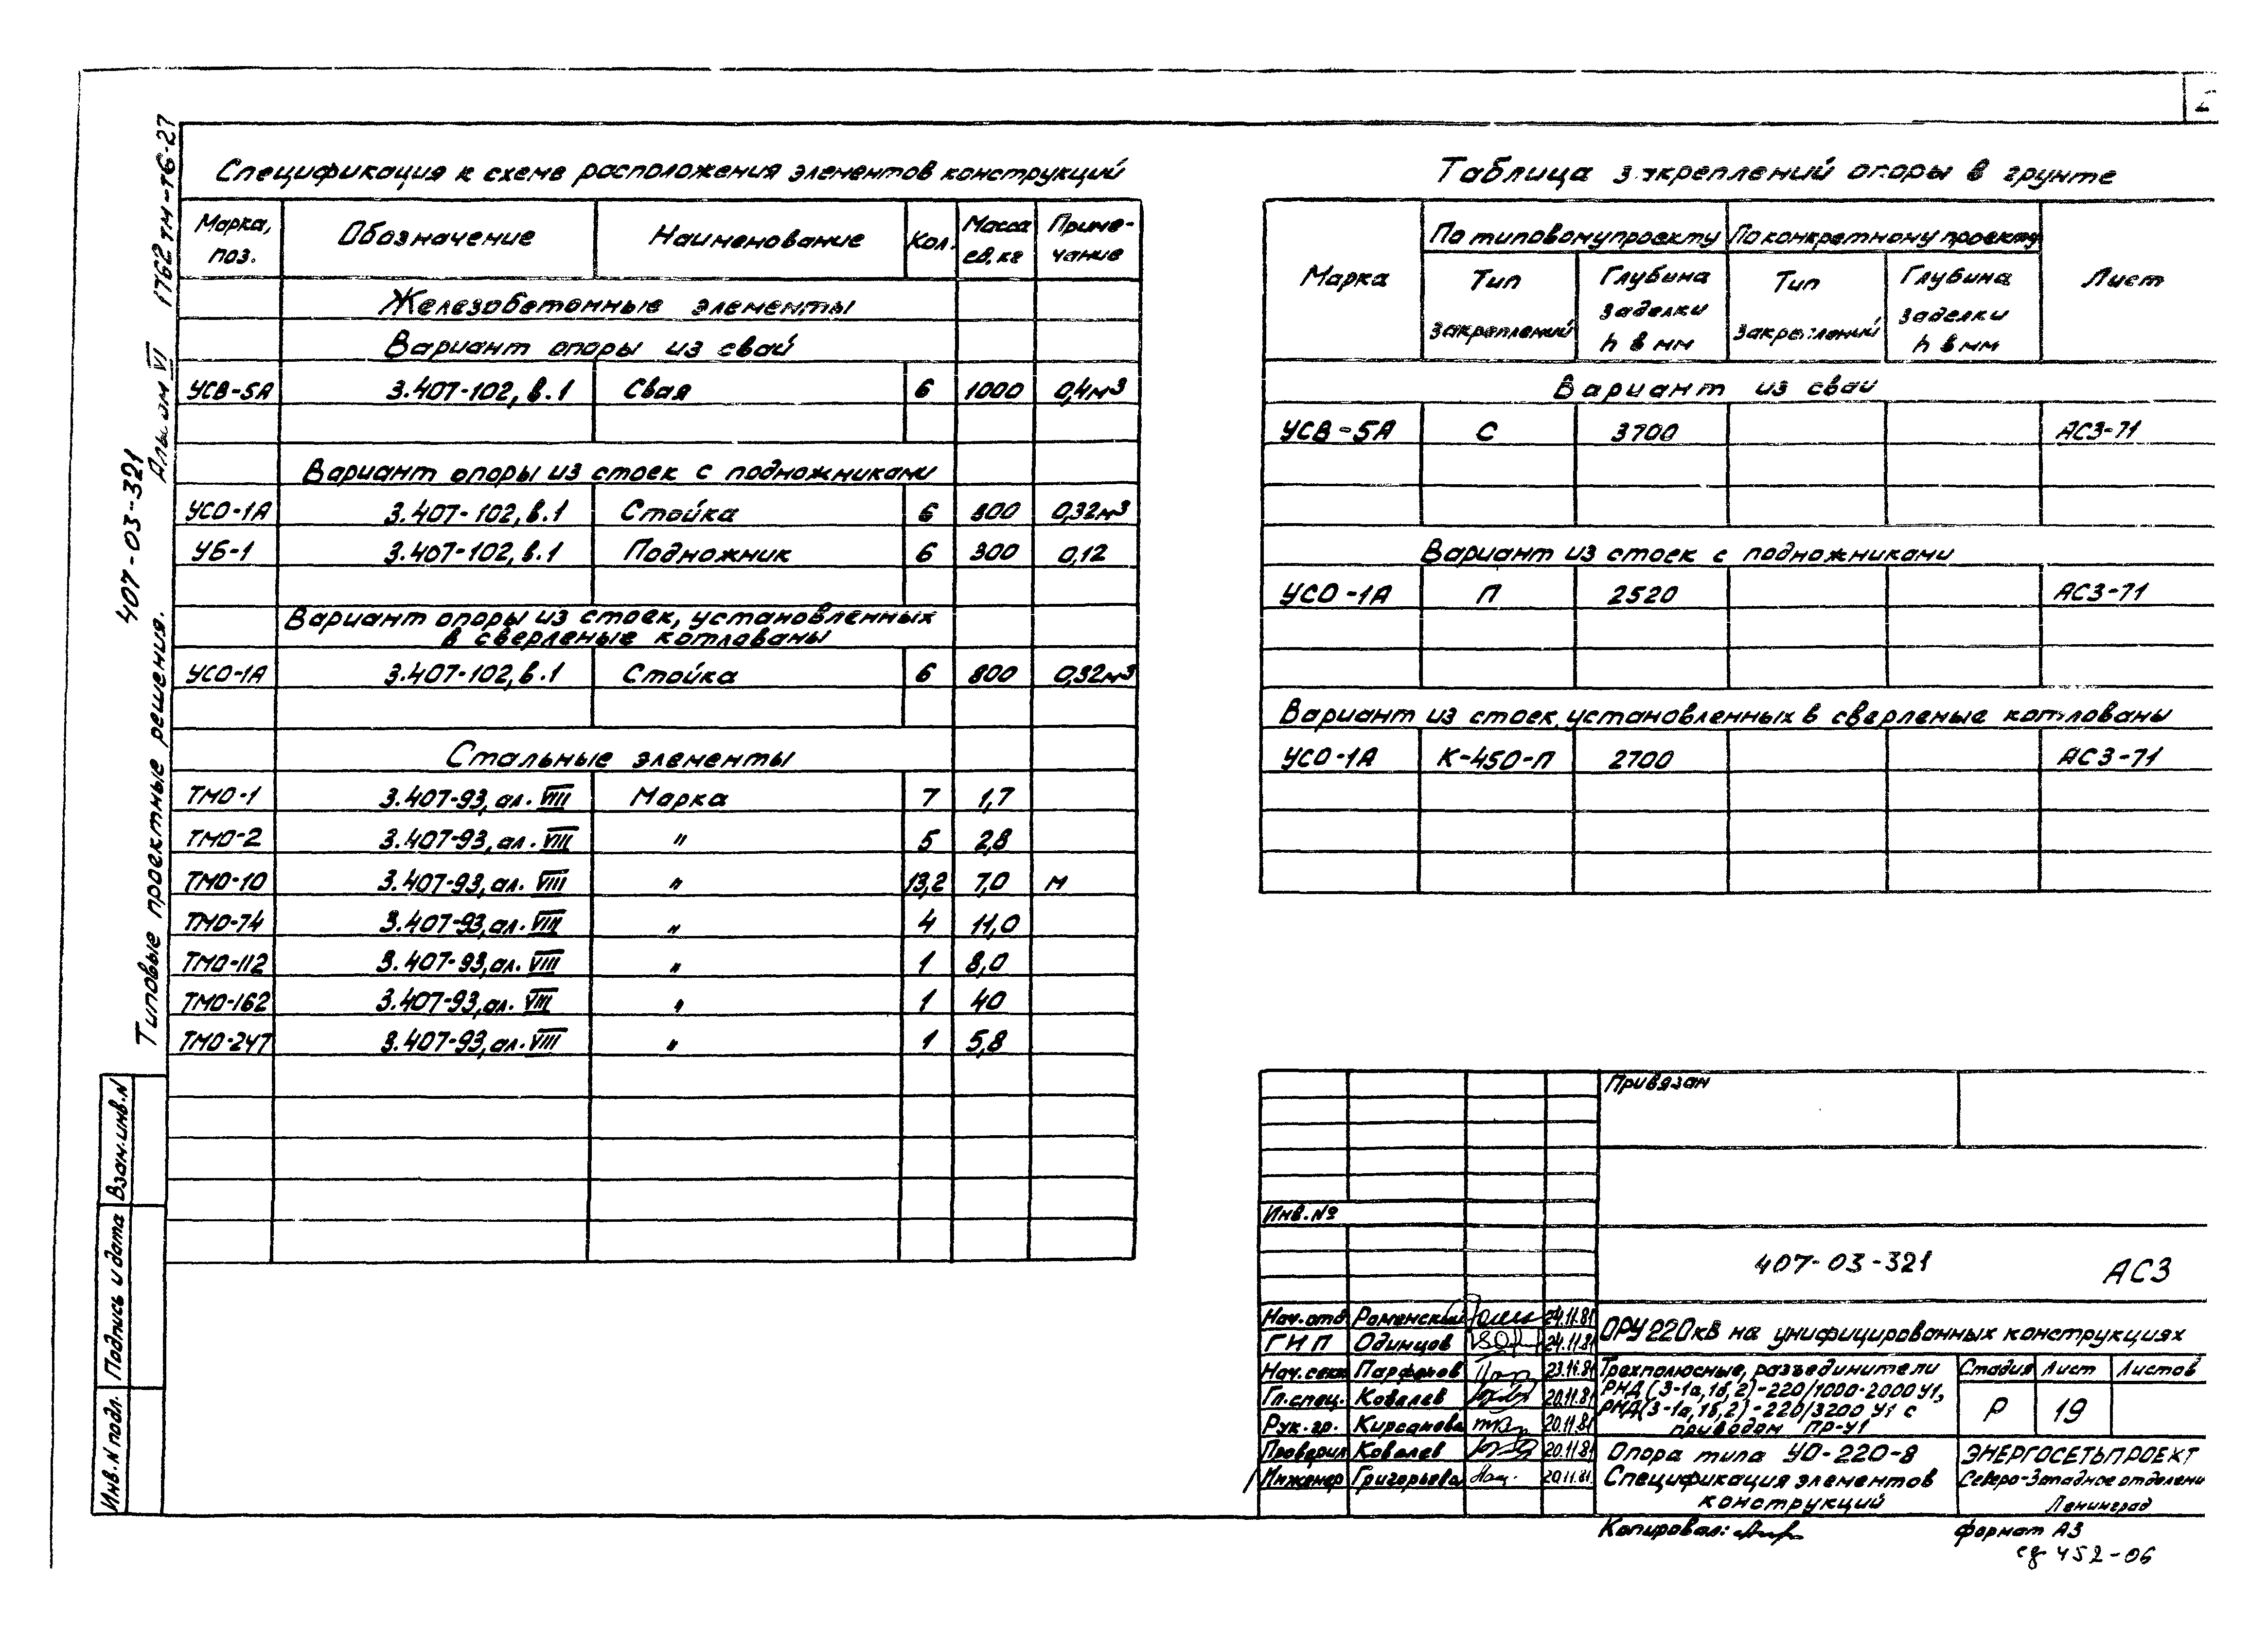 Спецификация к схеме расположения элементов конструкций
Марка, поз. Обозначение Наименование Кол. Масса ед, кг Приме-чание
Железобетонные элементы
Вариант опоры из свай
УСВ-5А 3.407-102, в.1 Свая 6 1000 0,4м³
Вариант опоры из стоек с подножниками
УСО-1А 3.407-102, в.1 Стойка 6 800 0,32м³
УБ-1 3.407-102, в.1 Подножник 6 300 0,12
Вариант опоры из стоек, установленных
в сверленые котлованы
УСО-1А 3.407-102, в.1 Стойка 6 800 0,32м³
Стальные элементы
ТМО-1 3.407-93, ал. VIII Марка 7 1,7
ТМО-2 3.407-93, ал. VIII " 5 2,8
ТМО-10 3.407-93, ал. VIII " 13,2 7,0 м
ТМО-74 3.407-93, ал. VIII " 4 11,0
ТМО-112 3.407-93, ал. VIII " 1 8,0
ТМО-162 3.407-93, ал. VIII " 1 40
ТМО-247 3.407-93, ал. VIII " 1 5,8
Таблица закреплений опоры в грунте
Марка По типовому проекту По конкретному проекту Лист
Тип закреплений Глубина заделки h в мм Тип закреплений Глубина заделки h в мм
Вариант из свай
УСВ-5А С 3700 АС3-71
Вариант из стоек с подножниками
УСО-1А П 2520 АС3-71
Вариант из стоек, установленных в сверленые котлованы
УСО-1А К-450-П 2700 АС3-71
Типовые проектные решения.
407-03-321
Альбом VI
1762 тм-т6-27
Взам.инв.N
Подпись и дата
Инв.N подл.
Привязан
Инв.№
407-03-321 АС3
Нач.отд Роменский 24.11.81
ГИП Одинцов 24.11.81
Нач.секц Парфенов 23.11.81
Гл.спец. Ковалев 20.11.81
Рук.гр. Кирсанова 20.11.81
Проверил Ковалев 20.11.81
Инженер Григорьева 20.11.81.
ОРУ 220кВ на унифицированных конструкциях
Трехполюсные, разъединители
РНД(3-1а,1б,2)-220/1000-2000 У1,
РНД(3-1а,1б,2)-220/3200 У1 с
приводом ПР-У1
Стадия Лист Листов
Р 19
Опора типа УО-220-8
Спецификация элементов
конструкций
ЭНЕРГОСЕТЬПРОЕКТ
Северо-Западное отделени
Ленинград
Копировал:
формат А3
452-06